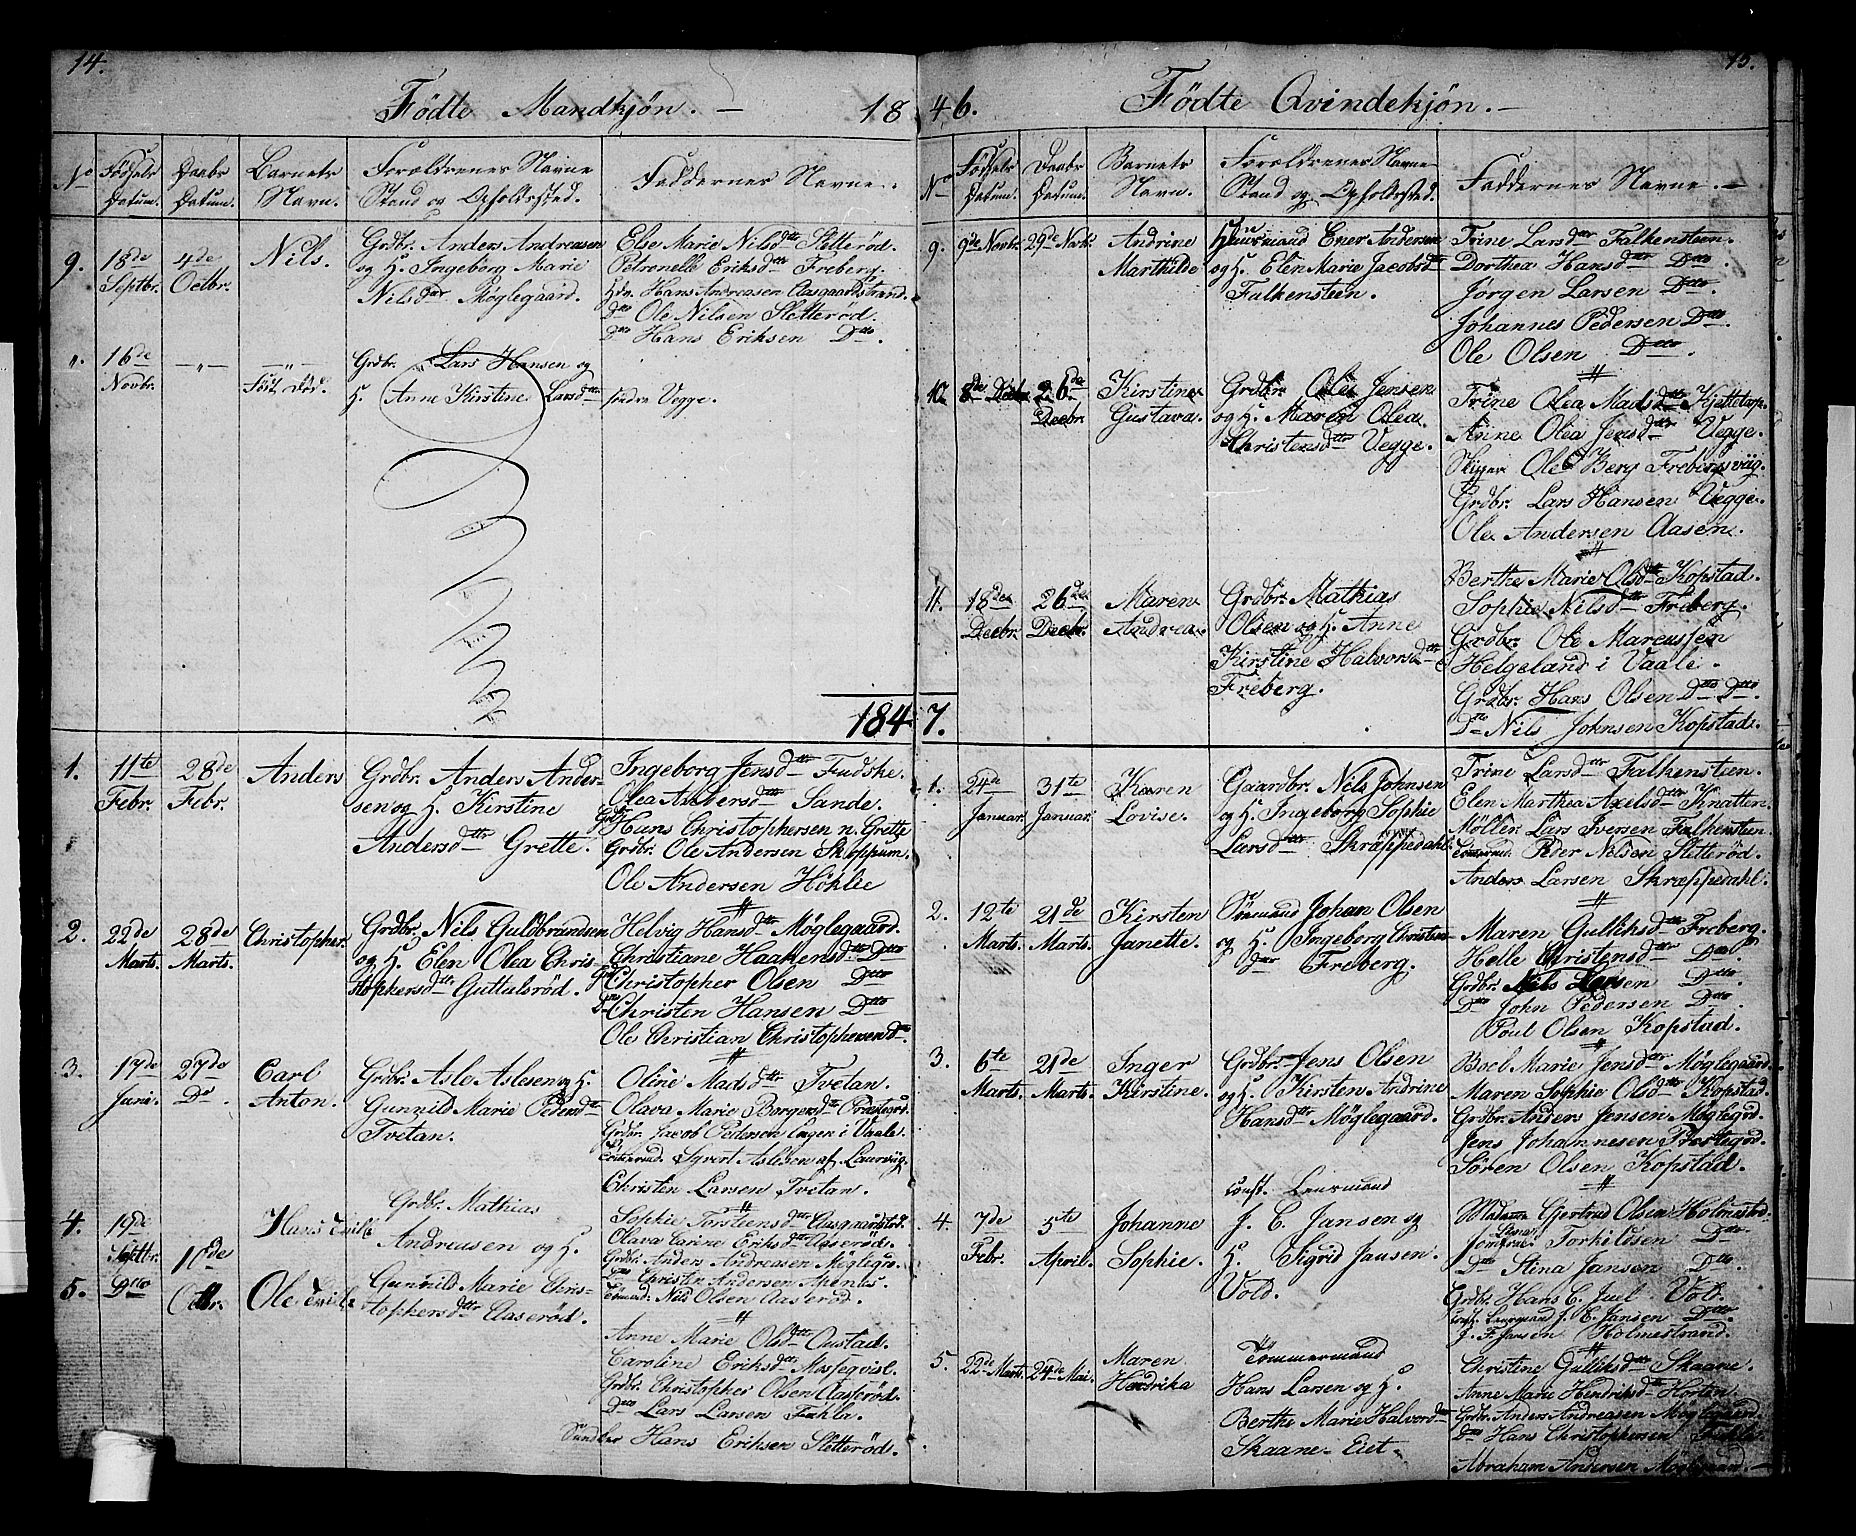 14.
Fødte Mandkjøn. — 18
No
Fødsels Datum.
Daabs Datum.
Barnets Navn.
Forældrenes Navne Stand og Opholdssted.
Faddernes Navne.
9.
18de Septbr.
4de Octbr.
Nils.
Grdbr. Anders Andreasen
og H. Ingeborg Marie
Nilsdtr Møglegaard.
Else Marie Nilsdttr Sletterød.
Petronelle Eriksdttr Freberg.
Hans Andreasen Aasgaardstrand.
Dto Ole Nilsen Sletterød.
Dto Hans Eriksen Dtto.
".
16de Novbr.
—"—
—"—
født død.
Grdbr. Lars Hansen og
H. Anne Kirstine Larsdttr
søndre Vegge.
1847.
1.
11te Febr.
28de Febr.
Anders
Grdbr. Anders Ander-
sen og H. Kirstine
Andersdttr Grette.
Ingeborg Jensdttr Fudske.
Olea Andersdttr Sande.
Hans Christophersen n. Grette
Grdbr. Ole Andersen Skoppum.
Ole Andersen Høklie
2.
22de Marts.
28de Marts.
Christopher.
Grdbr. Nils Guldbrandsen
og H. Elen Olea Chris-
stophersdttr Guttalsrød.
Helvig Hansdttr Møglegaard.
Christiane Haakensdttr Dtto
Christopher Olsen Dtto
Christen Hansen Dtto
Ole Christian Christophersen Dto
3.
17de Juni.
27de Do.
Carl
Anton.
Grdbr. Asle Aslesen og H.
Gunnild Marie Pedersdttr
Tvetan.
Oline Madsdttr Tvetan.
Olava Marie Borgersdttr Præstegrd.
Grdbr. Jacob Pedersen Engen i Vaale.
Syvert Aslesen af Laurvig.
Christen Larsen Tvetan.
4.
19de Septbr.
10de
Hans Tvill.
Grdbr. Mathias
Andreasen og H.
Sophie Torstensdttr Aasgaardstrd.
Olava Karine Eriksdttr Aaserød.
Grdbr. Anders Andreasen Møglegrd.
Dto Christen Andersen Apenes.
Tømmd. Nils Olsen Aaserød.
5.
Dtto
Octbr.
Ole Tvill.
Gunnild Marie Chris-
tophersdttr Aaserød.
Anne Marie Olsdttr Austad.
Caroline Eriksdttr Mossegvisl.
Grdbr. Christopher Olsen Aaserød.
Dto Lars Larsen Fuhla.
Hans Eriksen Sletterød.
15.
46. Fødte Qvindekjøn. —
No
Fødsels Datum.
Daabs Datum.
Barnets Navn.
Forældrenes Navne Stand og Opholdssted.
Faddernes Navne. —
9.
9de Novbr.
29de Novbr.
Andrine
Marthilde
Huusmand Ener Andersen
og H. Elen Marie Jacobsdttr
Falkensteen.
Trine Larsdttr Falkensteen.
Dorthea Hansdttr Dtto.
Jørgen Larsen Dtto.
Johannes Pedersen Dtto.
Ole Olsen Dtto.
10.
8de Decbr.
26de Decbr.
Kirstine
Gustava.
Grdbr. Ole Jensen
og H. Maren Olea
Christensdttr Vegge.
Trine Olea Madsdttr Kjettetop.
Anne Olea Jensdttr Vegge.
Skipper Ole Berg Frebergsviig.
Grdbr. Lars Hansen Vegge.
Ole Andersen Aasen.
11.
18de Decbr.
26de Decbr.
Maren
Andrea.
Grdbr. Mathias
Olsen og H. Anne
Kirstine Halvorsdttr
Freberg.
Berthe Marie Olsdttr Kopstad.
Sophie Nilsdttr Freberg.
Grdbr. Ole Marcussen
Helgeland i Vaale.
Grdbr. Hans Olsen Dtto Dtto.
Do Nils Johnsen Kopstad.
1.
24de Januar.
31te Januar.
Karen
Lovise.
Gaardbr. Nils Johnsen
og H. Ingeborg Sophie
Larsdttr Skræppedahl.
Trine Larsdttr Falkensteen.
Elen Marthea Axelsdttr Knatten.
Møller Lars Iversen Falkensteen.
Tømmrmd. Peder Nilsen Sletterød.
Anders Larsen Skræppedahl.
2.
12te Marts.
21de Marts.
Kirsten
Janette.
Sømand Johan Olsen
og H. Ingeborg Christens-
dtr Freberg.
Maren Gulliksdttr Freberg.
Helle Christensdttr Dtto.
Grdbr. Nils Larsen Dtto.
Dto John Pedersen Dtto.
Poul Olsen Kopstad.
3.
6te Marts.
21de Marts.
Inger
Kirstine.
Grdbr. Jens Olsen
og H. Kirsten Andrine
Hansdttr Møglegaard.
Boel Marie Jensdttr Møglegaard.
Maren Sophie Olsdttr Kopstad.
Grdbr. Anders Jensen Møglegrd.
Jens Johannesen Præstegrd.
Søren Olsen Kopstad.
4.
7de Febr.
5te April.
Johanne
Sophie.
const. Lensmand
J. C. Jansen og
H. Sigrid Jansen.
Vold.
Madame Gjertrud Olsen Holmestrd.
Jomfrue Torkildsen Dtto.
Dtto Stina Jansen Dtto.
Grdbr. Hans C. Juel Vold.
Const. Lensmand J. C. Jansen Dtto.
J. F. Jansen Holmestrand.
5.
22de Marts.
24de Mai.
Maren
Hendrika
Tømmermand
Hans Larsen og H.
Berthe Marie Halvorsdttr
Skaane-Eiet.
Christine Gulliksdttr Skaane.
Anne Marie Hendriksdttr Horten.
Grdbr. Anders Andreasen Møglegaard
Dto Hans Christophersen
Abraham Andersen